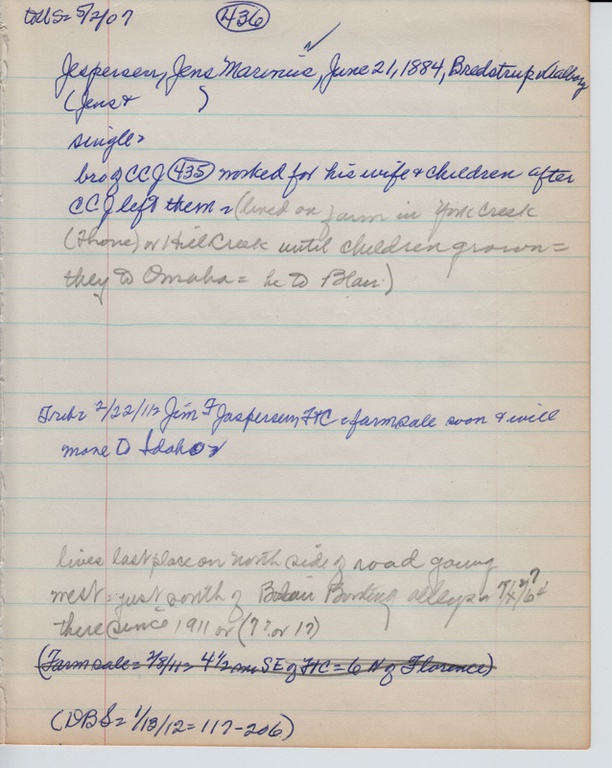 5/2/07 436
Jespersen, Jens Marinus, June 21, 1884, Bredstrup Aalborg
(Jens & )
single=
bro of CCJ 435 worked for his wife & children after
CCJ left them = (lived on farm in York Creek
(Thone) or Hill Creek until children grown =
they to Omaha = he to Blair)
Trib= 2/22/11= Jim F Jaspersen, FtC = farm sale soon & will
move to Idaho=
lives last place on north side of road going
west = just south of Blair Bowling alleys =
there since 1911 or (7? or 1?)
(Farm sale = 2/8/11= 4 1/2 mi SE of FtC = 6 N of Florence)
(DBS= 1/18/12=117-206)